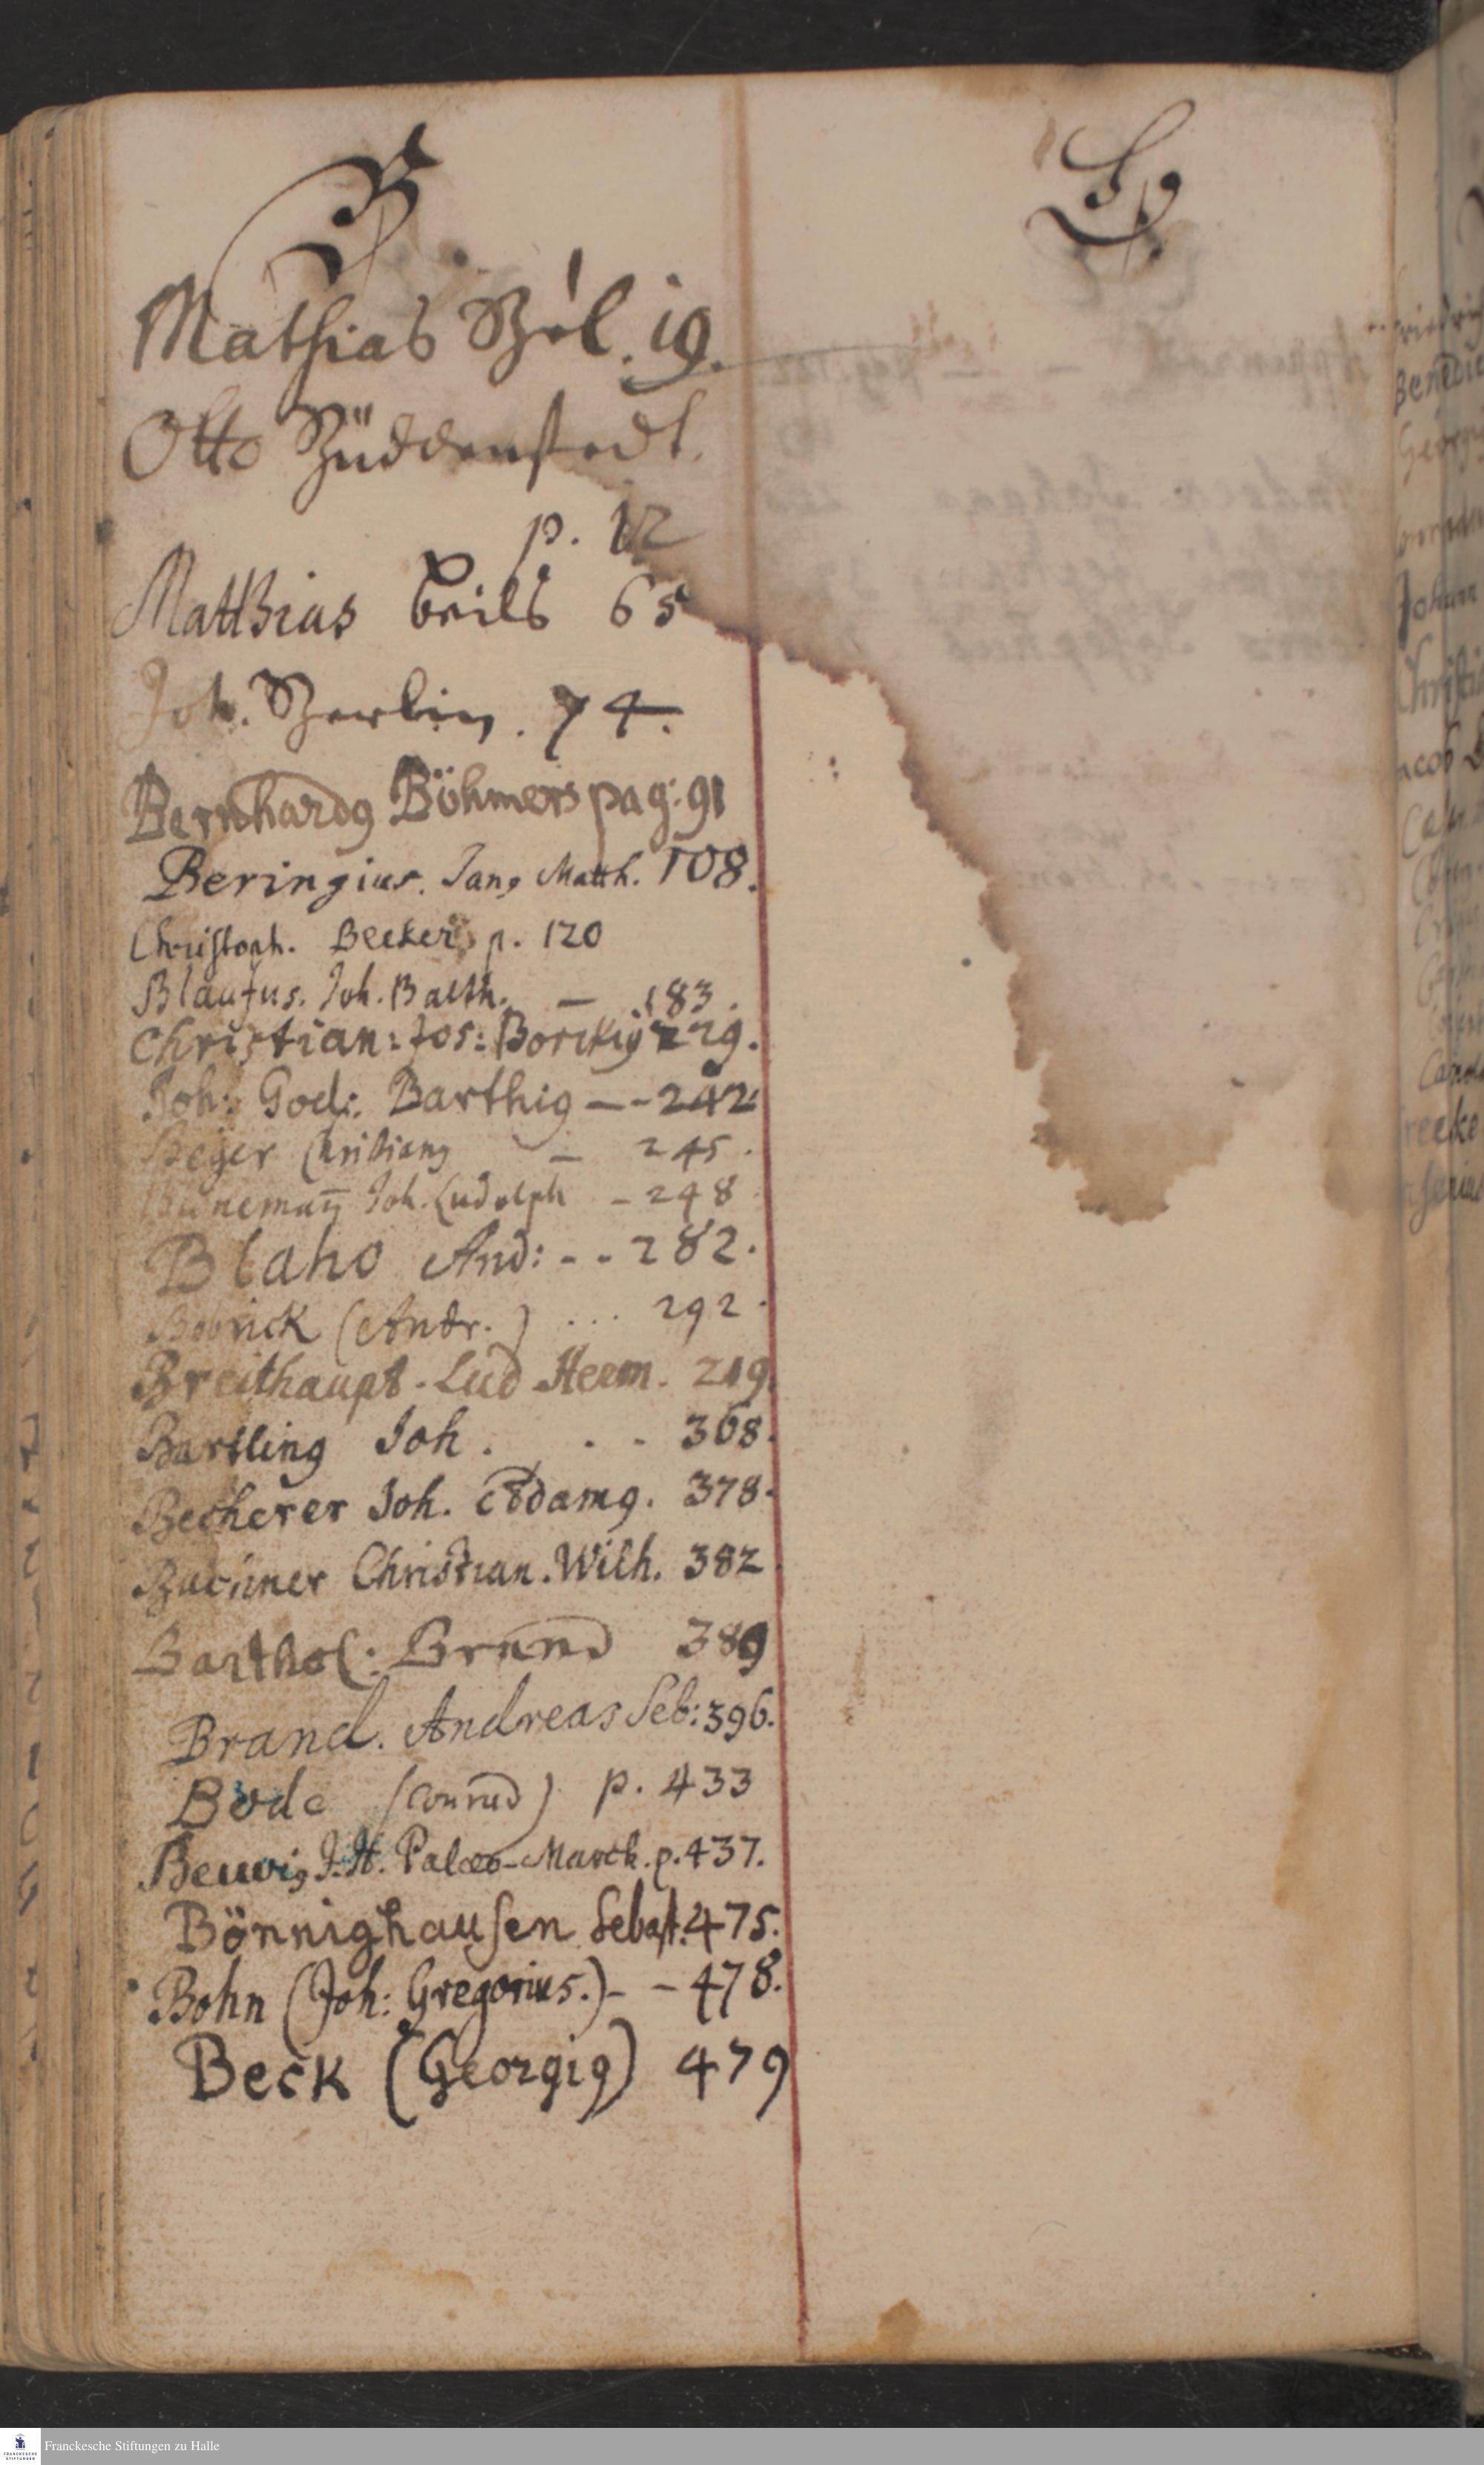 B
Mathias Bél. 19.
Otto Büddenstedt.
p. 12
Matthias beils 65
Joh. Berlin. 74.
Bernhardg Böhmers pag: 91
Beringius. Jang Matth. 108.
Christoph. Becker p. 120
Blaufus. Joh. Balth. — 183.
Christian: Jos: Borckig 229.
Joh: God: Barthig — - 242
Beyer Christiang — 245.
Bünemañ Joh. Ludolph - 248
Blaho And: - - 282.
Bobrick (Andr.) ... 292.
Breithaupt. Lud Herm. 219.
Bartling Joh. . - 368.
Becherer Joh. Adamg. 378.
Buchner Christian. Wilh. 382.
Barthol: Brund 389
Brand. Andreas Seb: 396.
Bode (Conrad) p. 433
J. H. Palæo-March. p. 437.
Bönnighausen Sebast. 475.
Bohn (Joh: Gregorius.) - - 478.
Beck (Georgig) 479